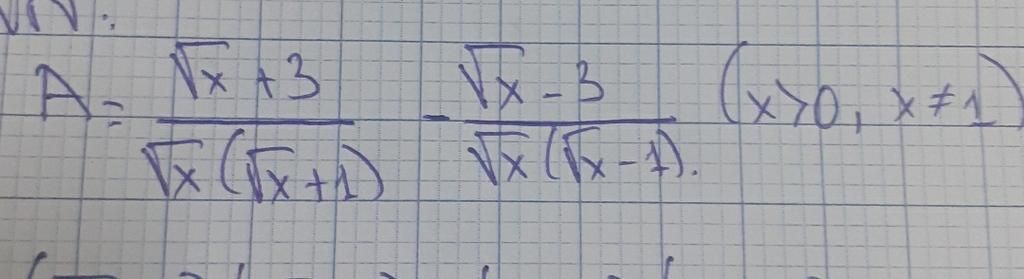 A = (√x + 3)/(√x(√x + 1)) - (√x - 3)/(√x(√x - 1)). (x>0, x≠1)